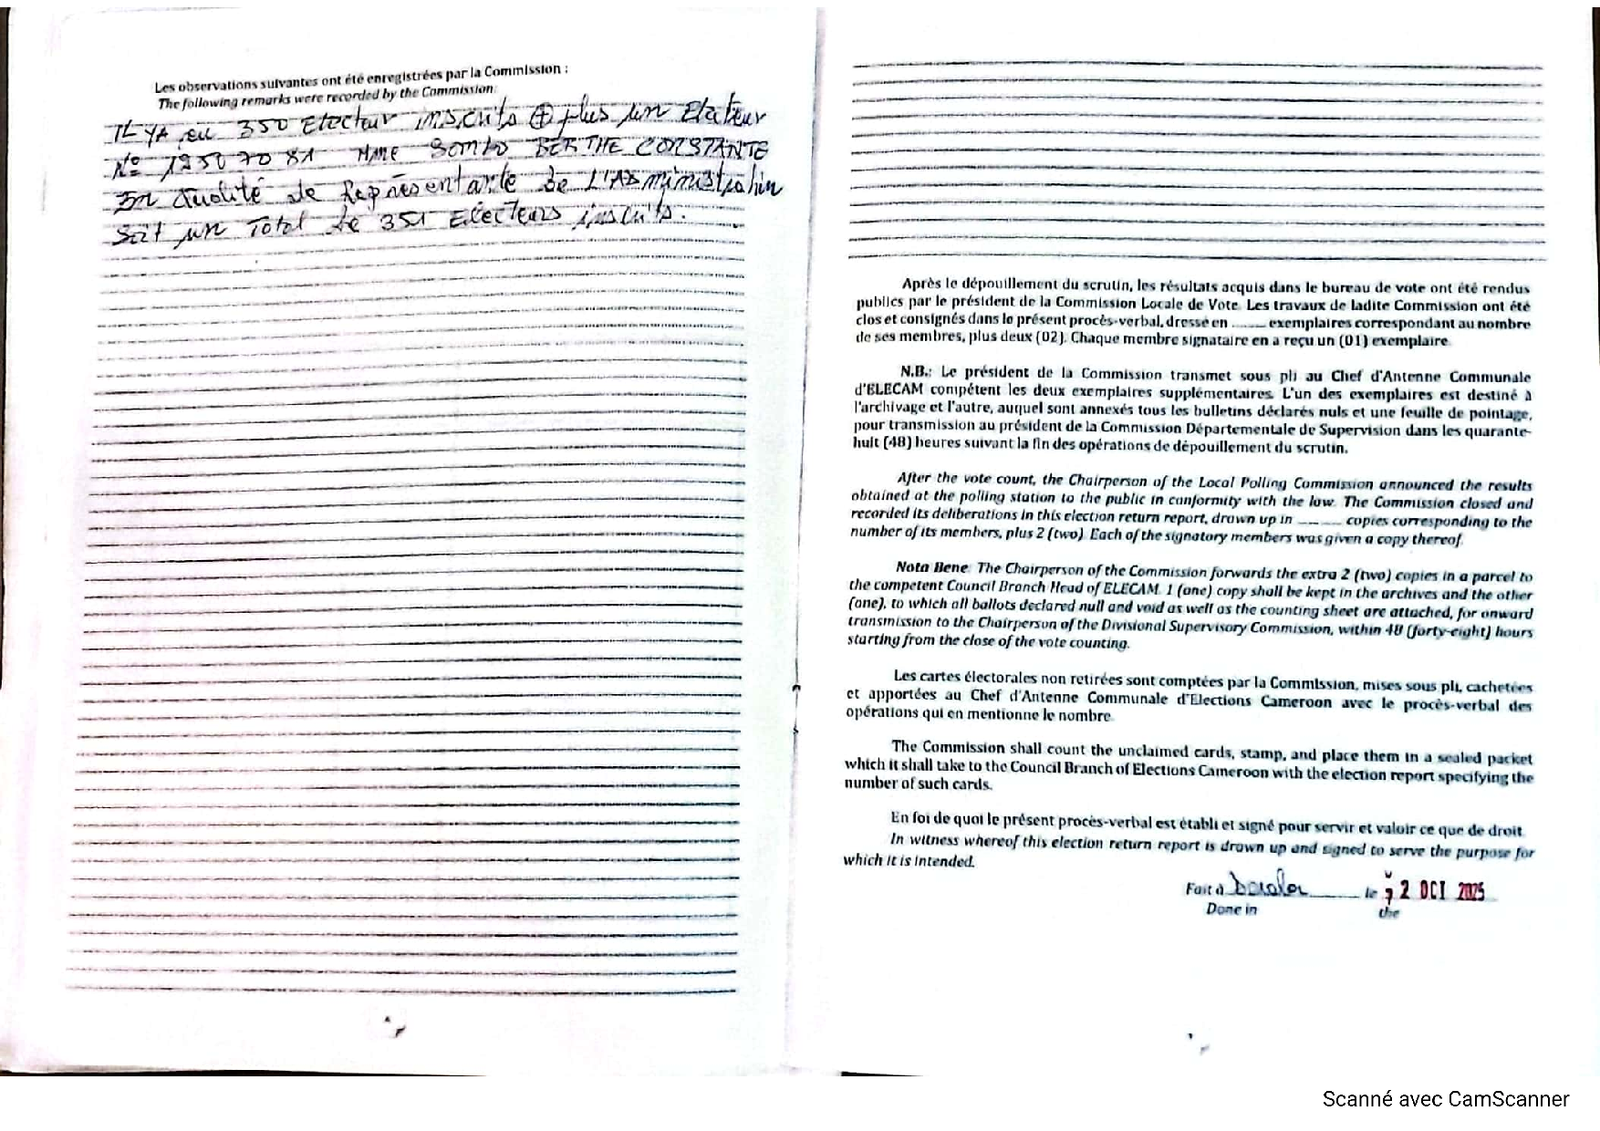 Les observations suivantes ont été enregistrées par la Commission :
The following remarks were recorded by the Commission:
IL YA eu 350 Electeur inscrits ⊕ plus un Electeur
N° 12507081 Mme BERTHE CONSTANTE
En Qualité de Représentante de L'Administration
Soit un Total de 351 Electeurs inscrits.
Après le dépouillement du scrutin, les résultats acquis dans le bureau de vote ont été rendus
publics par le président de la Commission Locale de Vote. Les travaux de ladite Commission ont été
clos et consignés dans le présent procès-verbal, dressé en ......... exemplaires correspondant au nombre
de ses membres, plus deux (02). Chaque membre signataire en a reçu un (01) exemplaire.
N.B.: Le président de la Commission transmet sous pli au Chef d'Antenne Communale
d'ELECAM compétent les deux exemplaires supplémentaires. L'un des exemplaires est destiné à
l'archivage et l'autre, auquel sont annexés tous les bulletins déclarés nuls et une feuille de pointage,
pour transmission au président de la Commission Départementale de Supervision dans les quarante-
huit (48) heures suivant la fin des opérations de dépouillement du scrutin.
After the vote count, the Chairperson of the Local Polling Commission announced the results
obtained at the polling station to the public in conformity with the law. The Commission closed and
recorded its deliberations in this election return report, drawn up in ......... copies corresponding to the
number of its members, plus 2 (two). Each of the signatory members was given a copy thereof.
Nota Bene: The Chairperson of the Commission forwards the extra 2 (two) copies in a parcel to
the competent Council Branch Head of ELECAM. 1 (one) copy shall be kept in the archives and the other
(one), to which all ballots declared null and void as well as the counting sheet are attached, for onward
transmission to the Chairperson of the Divisional Supervisory Commission, within 48 (forty-eight) hours
starting from the close of the vote counting.
Les cartes électorales non retirées sont comptées par la Commission, mises sous pli, cachetées
et apportées au Chef d'Antenne Communale d'Elections Cameroon avec le procès-verbal des
opérations qui en mentionne le nombre.
The Commission shall count the unclaimed cards, stamp, and place them in a sealed packet
which it shall take to the Council Branch of Elections Cameroon with the election report specifying the
number of such cards.
En foi de quoi le présent procès-verbal est établi et signé pour servir et valoir ce que de droit.
In witness whereof this election return report is drawn up and signed to serve the purpose for
which it is intended.
Fait à Douala le 12 OCT 2025
Done in the
Scanné avec CamScanner